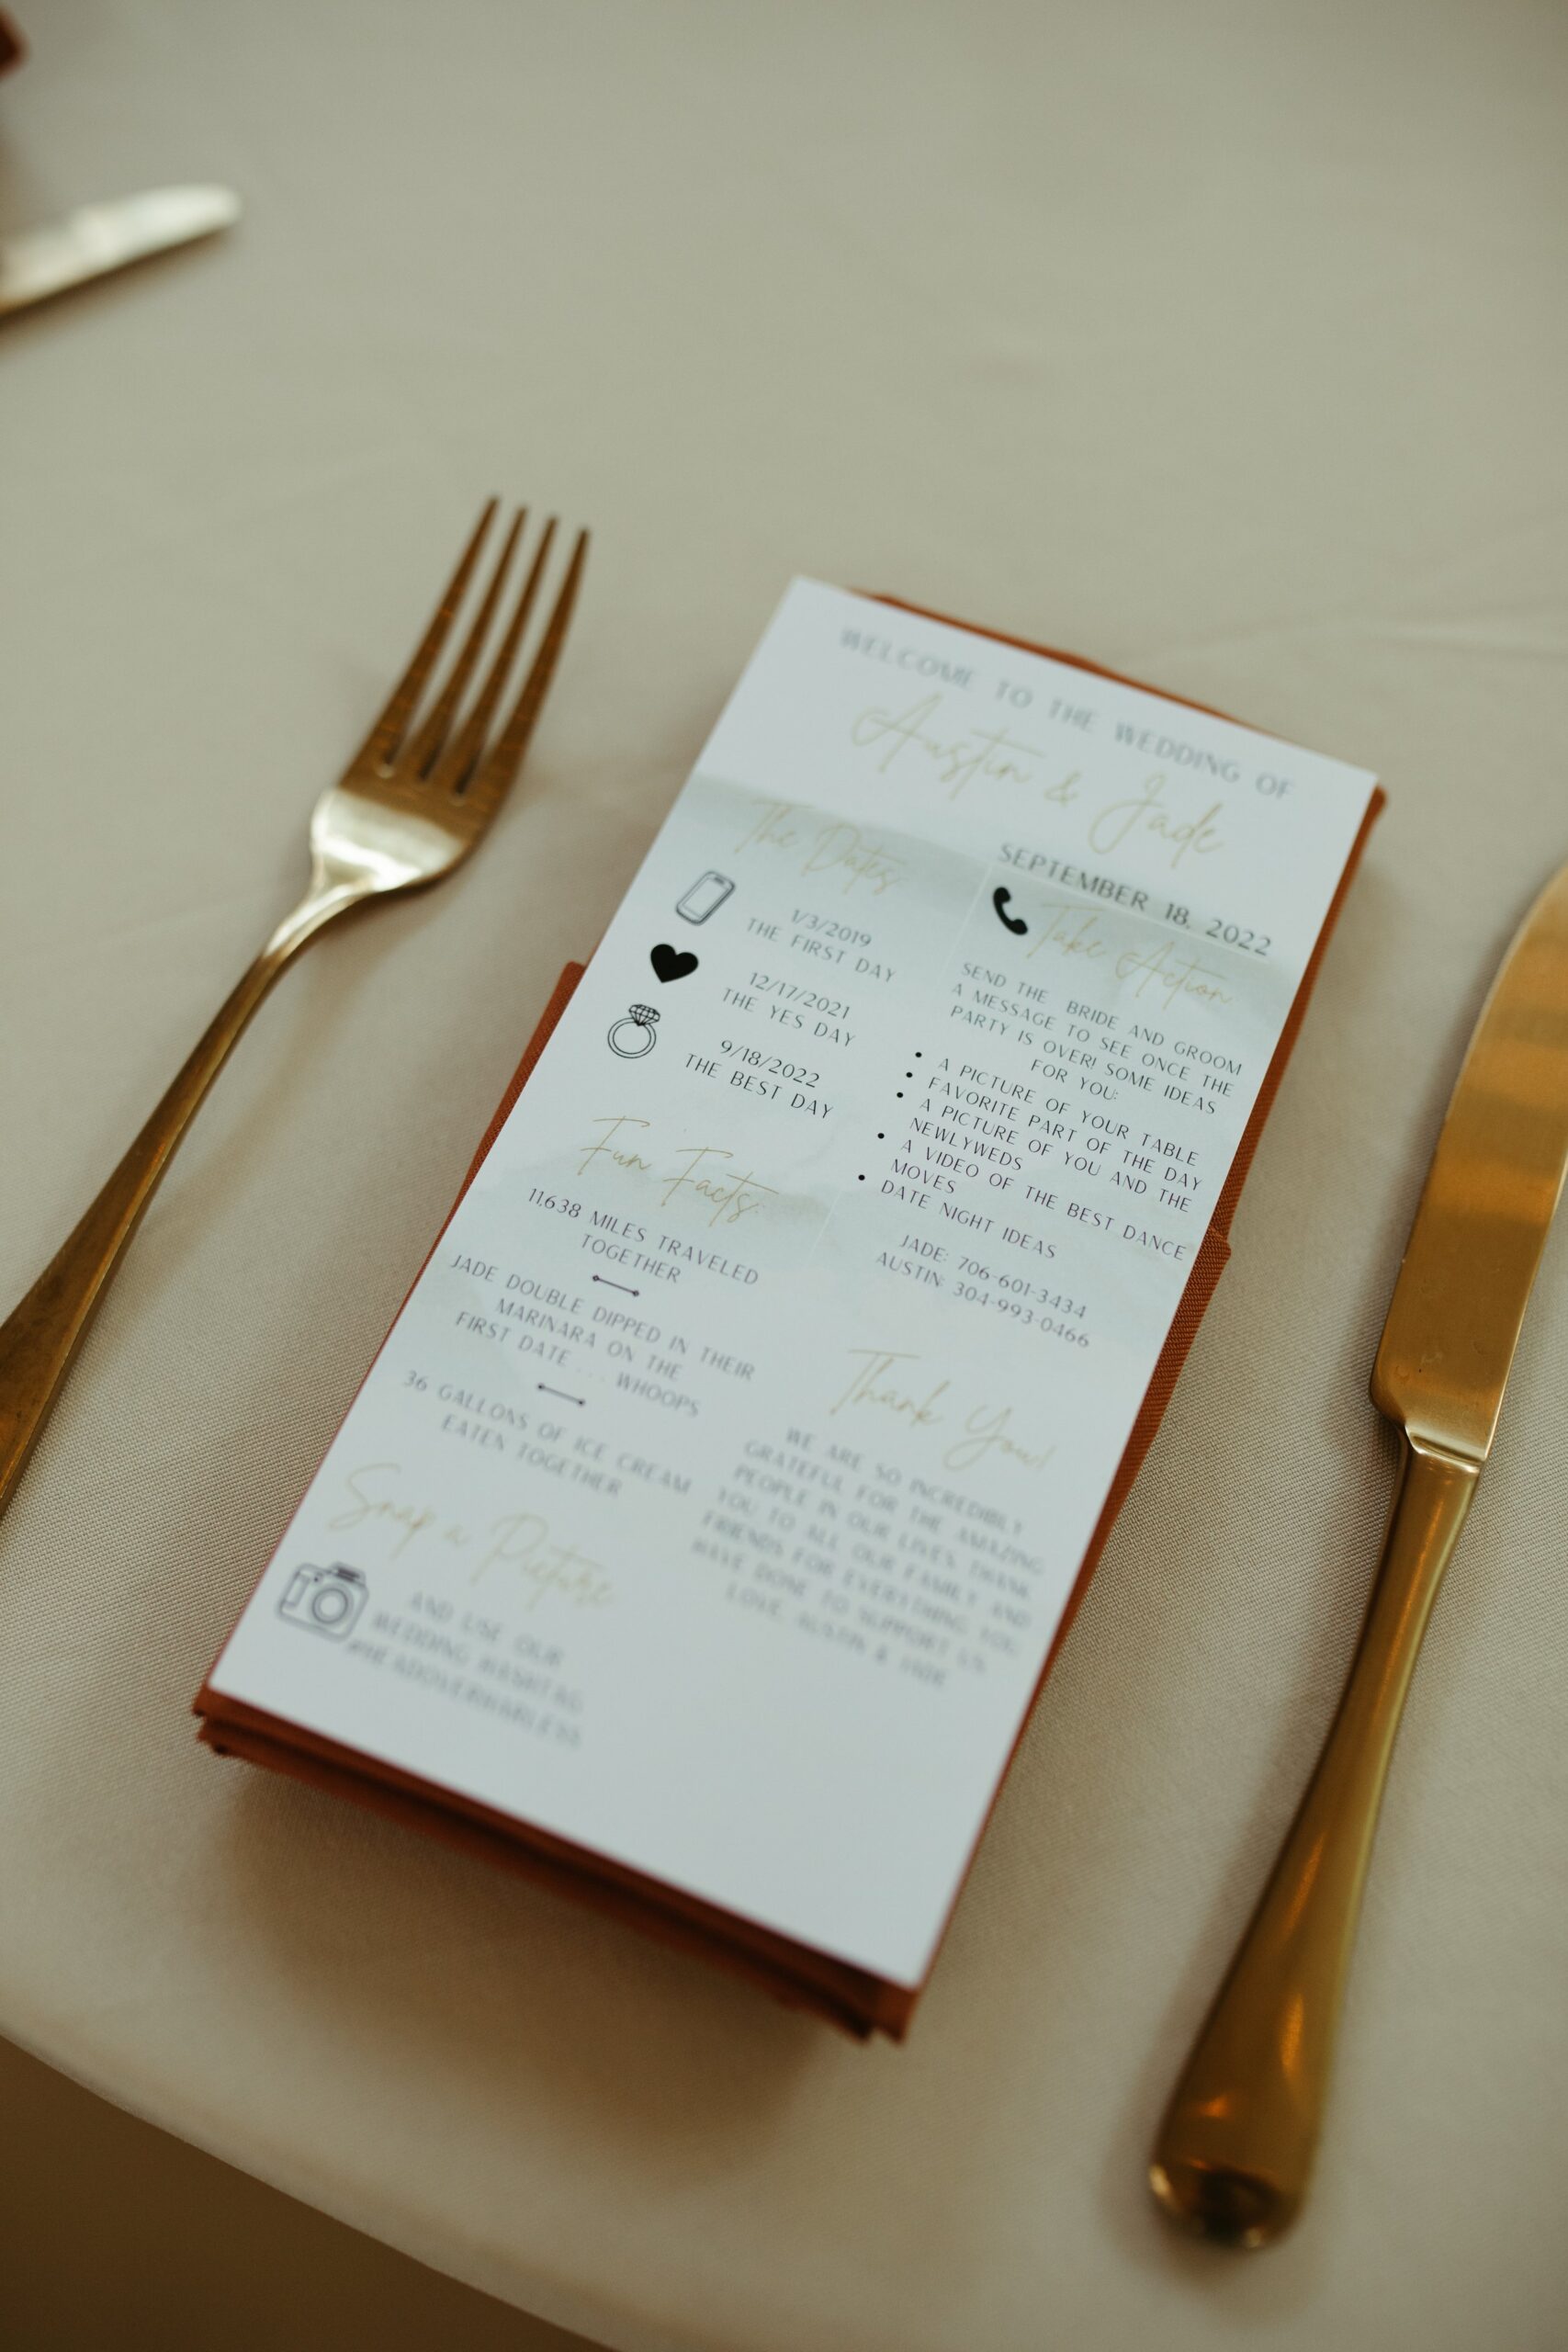 WELCOME TO THE WEDDING OF
Austin & Jade
SEPTEMBER 18, 2022
The Dates
1/3/2019
THE FIRST DAY
12/17/2021
THE YES DAY
9/18/2022
THE BEST DAY
Fun Facts:
11,638 MILES TRAVELED
TOGETHER
JADE DOUBLE DIPPED IN THEIR
MARINARA ON THE
FIRST DATE . . . WHOOPS
36 GALLONS OF ICE CREAM
EATEN TOGETHER
Snap a Picture
AND USE OUR
WEDDING HASHTAG
Take Action
SEND THE BRIDE AND GROOM
A MESSAGE TO SEE ONCE THE
PARTY IS OVER! SOME IDEAS
FOR YOU:
• A PICTURE OF YOUR TABLE
• FAVORITE PART OF THE DAY
• A PICTURE OF YOU AND THE
NEWLYWEDS
• A VIDEO OF THE BEST DANCE
MOVES
• DATE NIGHT IDEAS
JADE: 706-601-3434
AUSTIN: 304-993-0466
Thank You!
WE ARE SO INCREDIBLY
GRATEFUL FOR THE AMAZING
PEOPLE IN OUR LIVES. THANK
YOU TO ALL OUR FAMILY AND
FRIENDS FOR EVERYTHING YOU
HAVE DONE TO SUPPORT US.
LOVE, AUSTIN & JADE